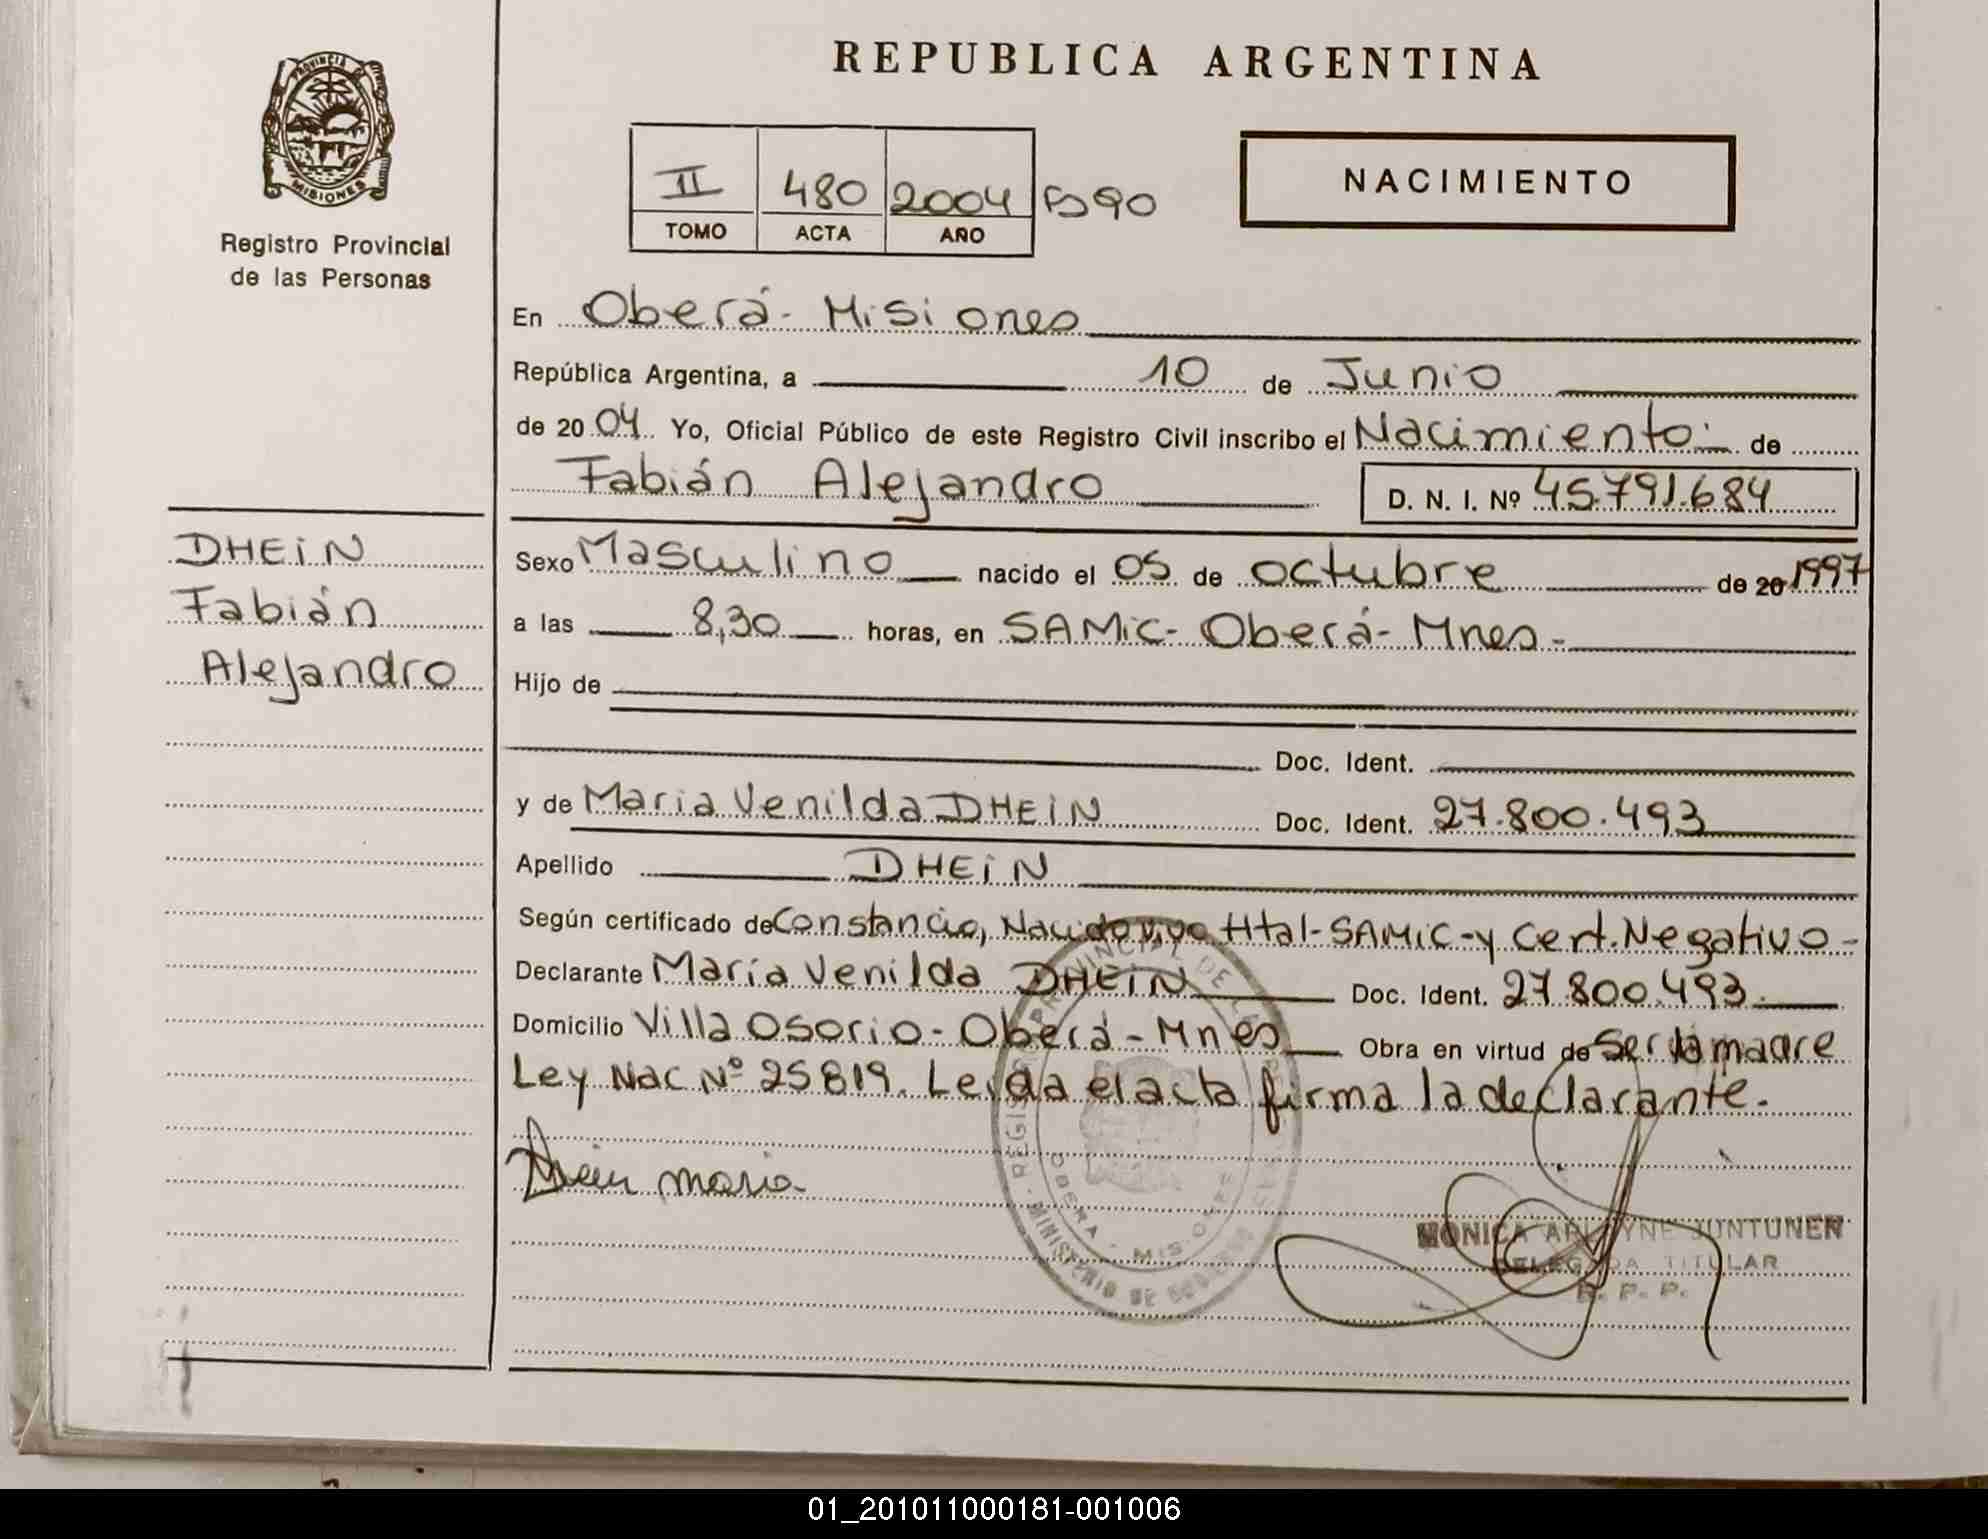 REPUBLICA ARGENTINA
PROVINCIA
MISIONES
Registro Provincial
de las Personas
II 480 2004 Fº 90
TOMO ACTA AÑO
NACIMIENTO
En Oberá - Misiones
República Argentina, a 10 de Junio
de 2004 Yo, Oficial Público de este Registro Civil inscribo el Nacimiento de
Fabián Alejandro D. N. I. Nº 45.791.684
DHEiN
Fabián
Alejandro
Sexo Masculino nacido el 05 de octubre de 20 1997
a las 8,30 horas, en SAMiC - Oberá - Mnes -
Hijo de
Doc. Ident.
y de Maria Venilda DHEiN Doc. Ident. 27.800.493
Apellido DHEiN
Según certificado de Constancia, Nacido vivo Htal - SAMiC - y Cert. Negativo -
Declarante María Venilda DHEiN Doc. Ident. 27.800.493
Domicilio Villa Osorio - Oberá - Mnes Obra en virtud de ser la madre
Ley Nac Nº 25819. Leida el acta firma la declarante.
Dhein maria
OBERA - MISIONES
MONICA ARLYNE JUNTUNEN
DELEGADA TITULAR
R. P. P.
01_201011000181-001006